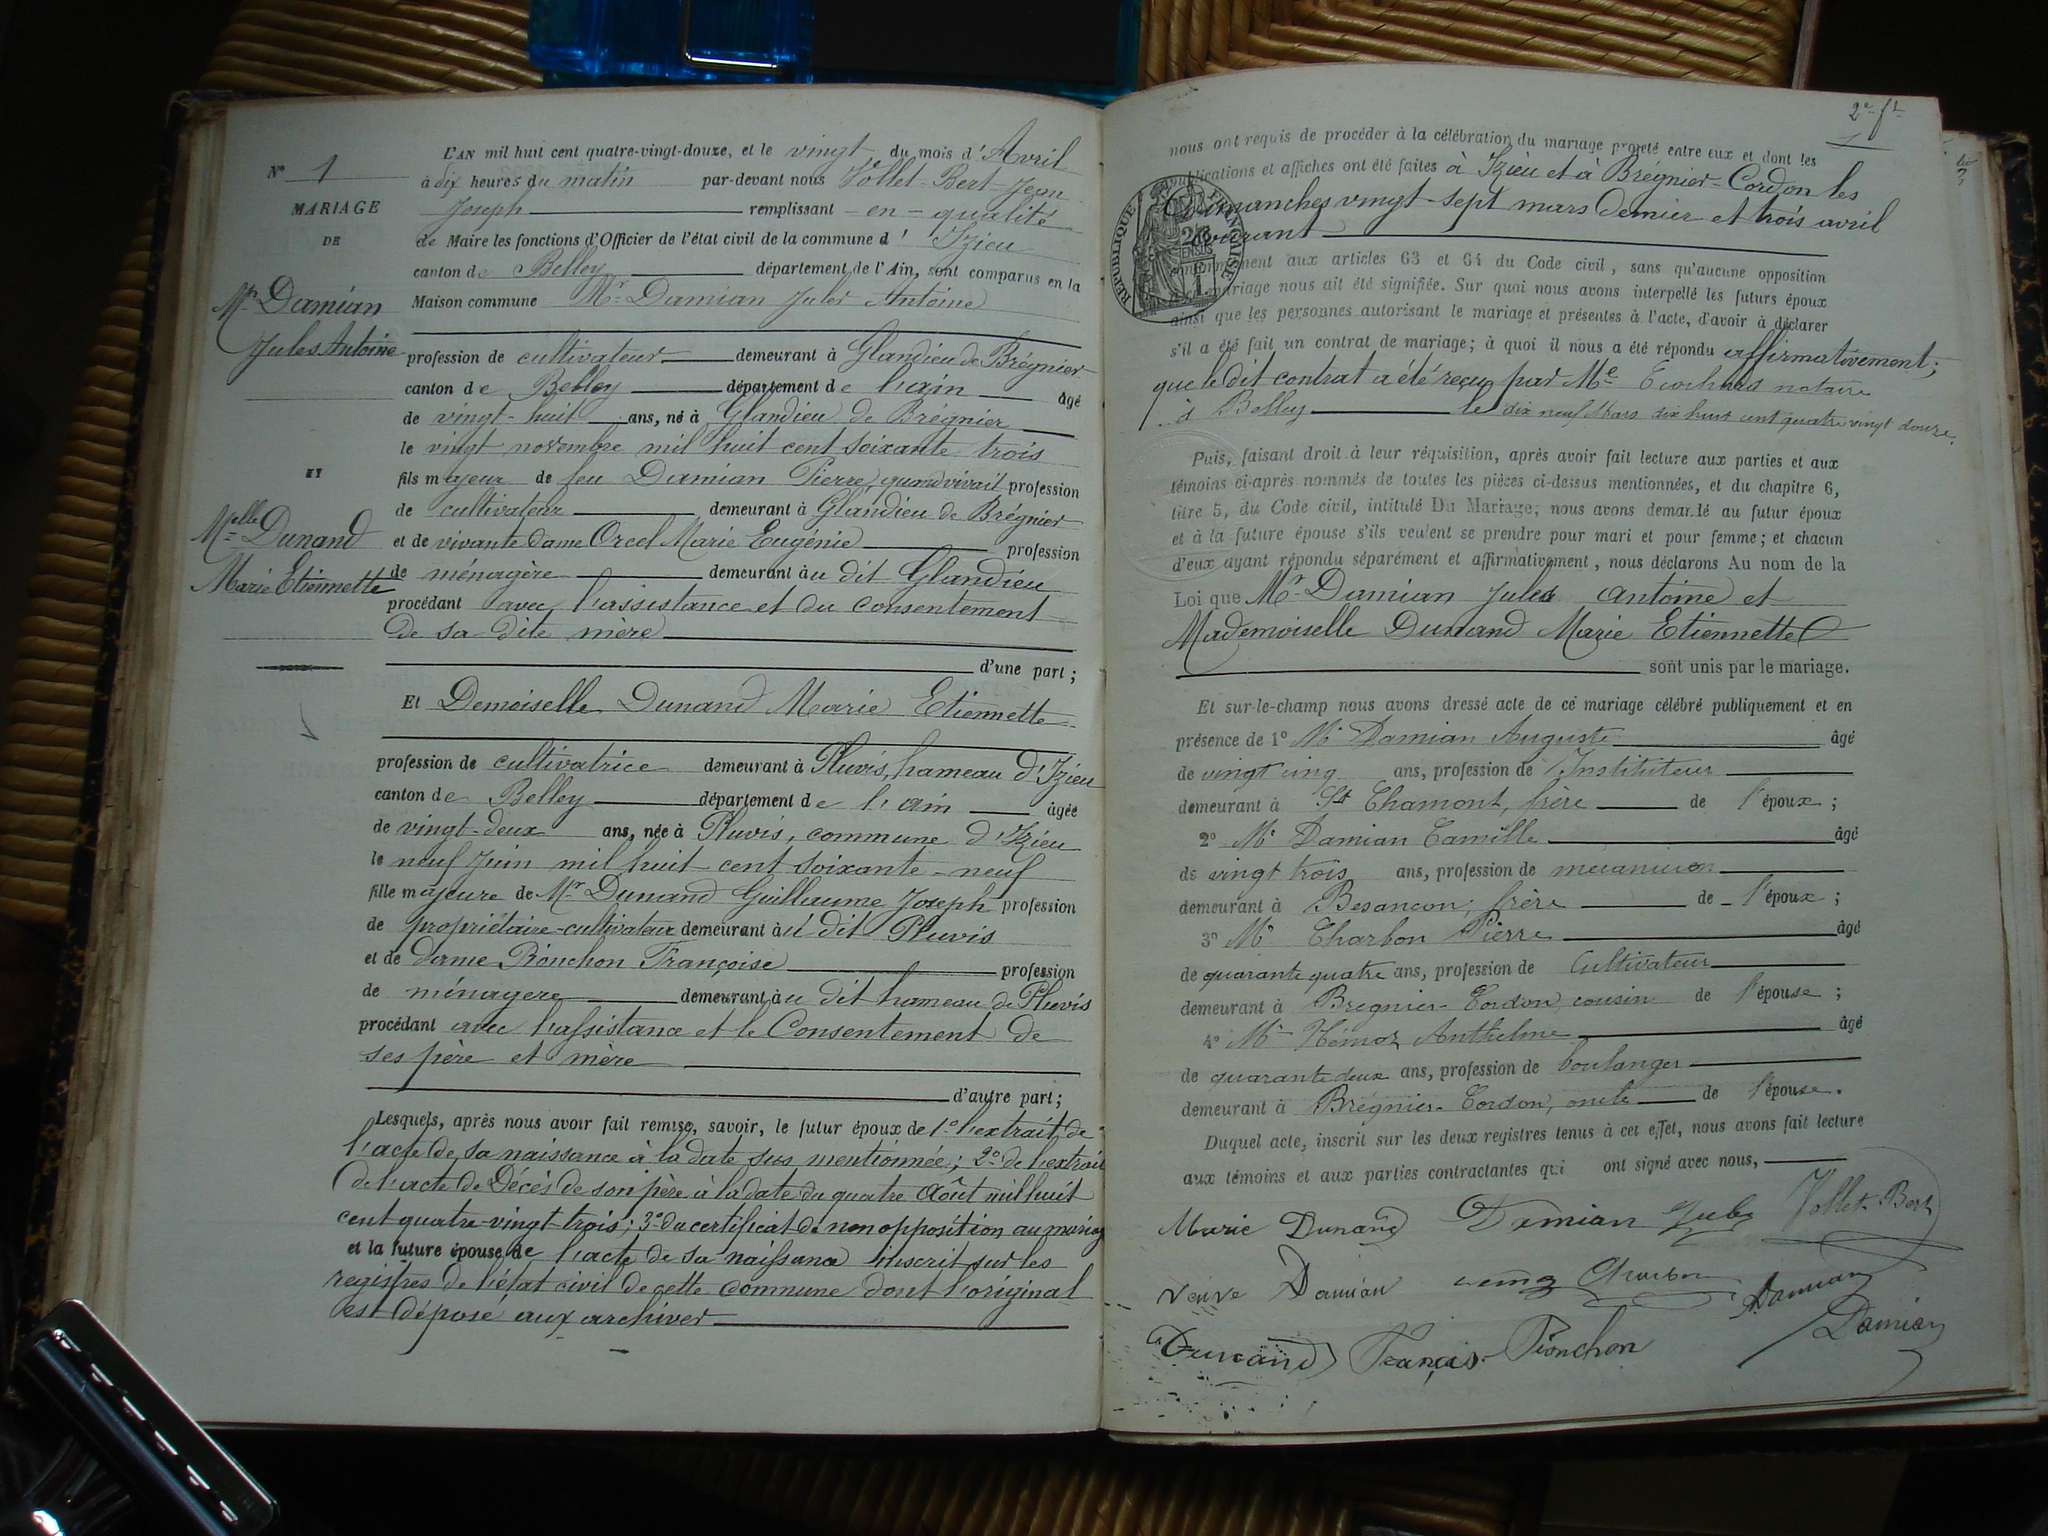 N° 1
MARIAGE
DE
Mr Damian
Jules Antoine
ET
Melle Dunand
Marie Etiennette
L'AN mil huit cent quatre-vingt-douze, et le vingt du mois d'Avril
à dix heures du matin par-devant nous Vollet-Bert Jean
Joseph remplissant en qualité
de Maire les fonctions d'Officier de l'état civil de la commune d'Izieu
canton de Belley département de l'Ain, sont comparus en la
Maison commune Mr Damian Jules Antoine
profession de cultivateur demeurant à Glandieu de Brégnier
canton de Belley département de l'ain âgé
de vingt-huit ans, né à Glandieu de Brégnier
le vingt novembre mil huit cent soixante trois
fils majeur de feu Damian Pierre, quand vivait profession
de cultivateur demeurant à Glandieu de Brégnier
et de vivante dame Orcel Marie Eugénie profession
de ménagère demeurant àu dit Glandieu
procédant avec l'assistance et du consentement
de sa dite mère
d'une part ;
Et Demoiselle Dunand Marie Etiennette
profession de cultivatrice demeurant à Pluvis, hameau d'Izieu
canton de Belley département de l'ain âgée
de vingt-deux ans, née à Pluvis, commune d'Izieu
le neuf Juin mil huit cent soixante-neuf
fille majeure de Mr Dunand Guillaume Joseph profession
de propriétaire-cultivateur demeurant àu dit Pluvis
et de dame Pionchon Françoise profession
de ménagère demeurant àu dit hameau de Pluvis
procédant avec l'assistance et le Consentement de
ses père et mère
d'autre part ;
Lesquels, après nous avoir fait remise, savoir, le futur époux de 1° l'extrait de
l'acte de sa naissance à la date sus mentionnée ; 2° de l'extrait
de l'acte de Décès de son père à la date du quatre Août mil huit
cent quatre-vingt-trois ; 3° du certificat de non opposition au mariage
et la future épouse de l'acte de sa naissance inscrit sur les
registres de l'état civil de cette commune dont l'original
est déposé aux archives
2e ft
nous ont requis de procéder à la célébration du mariage projeté entre eux et dont les
publications et affiches ont été faites à Izieu et à Brégnier-Cordon les
Dimanches vingt-sept mars dernier et trois avril
courant
RÉPUBLIQUE FRANÇAISE
conformément aux articles 63 et 64 du Code civil, sans qu'aucune opposition
mariage nous ait été signifiée. Sur quoi nous avons interpellé les futurs époux
ainsi que les personnes autorisant le mariage et présentes à l'acte, d'avoir à déclarer
s'il a été fait un contrat de mariage ; à quoi il nous a été répondu affirmativement ;
que le dit contrat a été reçu par Me notaire
à Belley le dix neuf Mars dix huit cent quatre vingt douze.
Puis, faisant droit à leur réquisition, après avoir fait lecture aux parties et aux
témoins ci-après nommés de toutes les pièces ci-dessus mentionnées, et du chapitre 6,
titre 5, du Code civil, intitulé Du Mariage, nous avons demandé au futur époux
et à la future épouse s'ils veulent se prendre pour mari et pour femme ; et chacun
d'eux ayant répondu séparément et affirmativement, nous déclarons Au nom de la
Loi que Mr Damian Jules Antoine et
Mademoiselle Dunand Marie Etiennette
sont unis par le mariage.
Et sur-le-champ nous avons dressé acte de ce mariage célébré publiquement et en
présence de 1° Mr Damian Auguste âgé
de vingt cinq ans, profession de Instituteur
demeurant à St Chamont, frère de l'époux ;
2° Mr Damian Camille âgé
de vingt trois ans, profession de mécanicien
demeurant à Besancon, frère de l'époux ;
3° Mr Charbon Pierre âgé
de quarante quatre ans, profession de Cultivateur
demeurant à Brégnier-Cordon, cousin de l'épouse ;
4° Mr Anthelme âgé
de quarante deux ans, profession de boulanger
demeurant à Brégnier-Cordon, oncle de l'épouse.
Duquel acte, inscrit sur les deux registres tenus à cet effet, nous avons fait lecture
aux témoins et aux parties contractantes qui ont signé avec nous,
Marie Dunand Damian Jules Vollet-Bert
veuve Damian Charbon Damian
Dunand Françoise Pionchon Damian